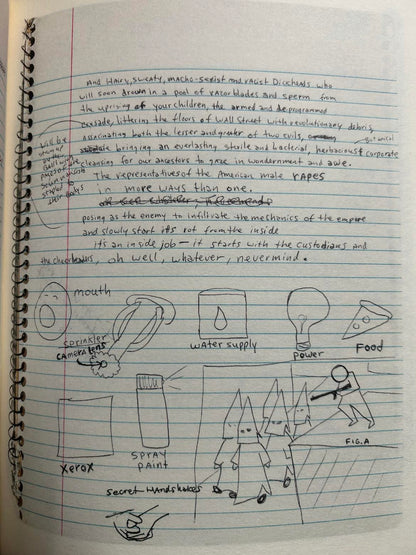 And Hairy, sweaty, macho-sexist and racist Dickheads who
will soon drown in a pool of razorblades and sperm from
the uprizing of your children, the armed and deprogrammed
crusade, littering the floors of Wall Street with revolutionary debris,
Assassinating both the lesser and greater of two evils,
bringing an everlasting sterile and bacterial, herbacious Botanical & corporate
cleansing for our ancestors to gaze in wonderment and awe.
The representatives of the American male RAPES
in more ways than one.
posing as the enemy to infiltrate the mechanics of the empire
and slowly start its rot from the inside
its an inside job — it starts with the custodians and
the cheerleaders, oh well, whatever, nevermind.
will be
mouth
sprinkler
camera lens
water supply
power
Food
Xerox
SPRAY
paint
FIG.A
secret Handshakes